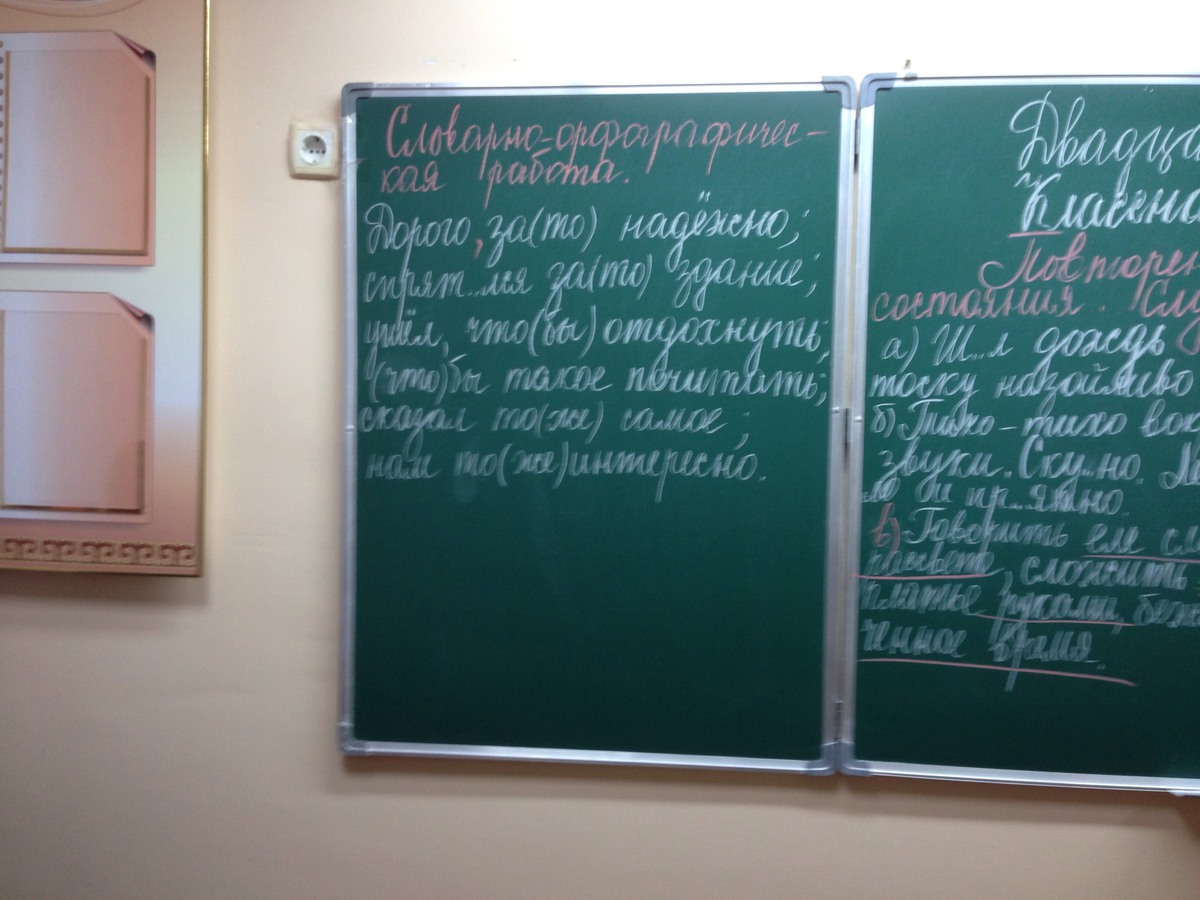 Словарно-орфографичес-
кая работа.
Дорого, за(то) надёжно;
спрят..лся за(то) здание;
ушёл, что(бы) отдохнуть;
(что)бы такое почитать;
сказал то(же) самое;
нам то(же) интересно.
Двадца
Классно
Повторен
состояния. Слу
а) Ш..л дождь
тоску назойливо
б) Тихо-тихо вок
звуки. Ску..но.
бы пр..ятно.
в) Говорить еле сл
рассвета, сложить
платье руками, беск
ченное время.